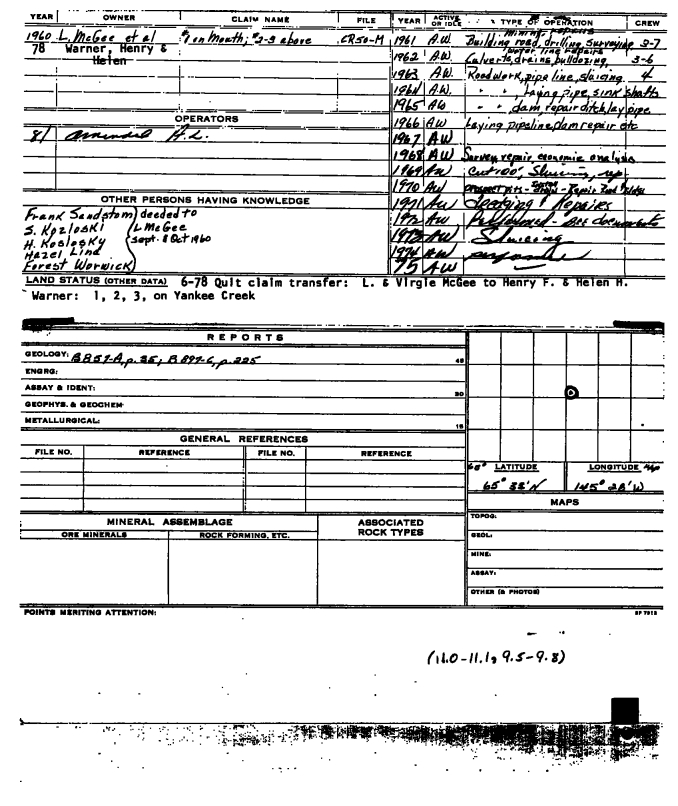 YEAR OWNER CLAIM NAME FILE
1960 L. McGee et al #1 on Mouth; #2-3 above CR50-M
78 Warner, Henry &
Helen
OPERATORS
81 H.L.
OTHER PERSONS HAVING KNOWLEDGE
Frank Sandstom) deeded to
S. Kozloski L McGee
H. Koslosky Sept. 8 Oct 1960
Hazel Lind
Forest Worwick
YEAR ACTIVE OR IDLE TYPE OF OPERATION CREW
Mining repairs
1961 AW Building road, drilling, surveying 3-7
water line repairs
1962 AW Culverts, drains, bulldozing, 3-6
1963 AW Roadwork, pipe line, sluicing 4
1964 AW " " , laying pipe, sink shafts
1965 AW " " , dam, repair ditch, lay pipe
1966 AW Laying pipeline, dam repair etc
1967 AW
1968 AW Survey, repair, economic analysis
1969 AW Cut 100', Sluicing, rep.
1970 AW prospect pits - Repair Road & bldgs
1971 AW Dredging & Repairs
1972 AW Performed - see documents
1973 AW Sluicing
1974 AW
75 AW
LAND STATUS (OTHER DATA) 6-78 Quit claim transfer: L. & Virgie McGee to Henry F. & Helen H.
Warner: 1, 2, 3, on Yankee Creek
REPORTS
GEOLOGY: B 857-A, p. 35; B 897-C, p. 225 45
ENGRG:
ASSAY & IDENT: 30
GEOPHYS. & GEOCHEM:
METALLURGICAL: 15
GENERAL REFERENCES
FILE NO. REFERENCE FILE NO. REFERENCE
MINERAL ASSEMBLAGE
ORE MINERALS ROCK FORMING, ETC.
ASSOCIATED
ROCK TYPES
LATITUDE LONGITUDE
65° 33'N 145° 28'W
MAPS
TOPOG:
GEOL:
MINE:
ASSAY:
OTHER (& PHOTOS)
POINTS MERITING ATTENTION:
(11.0-11.1, 9.5-9.8)